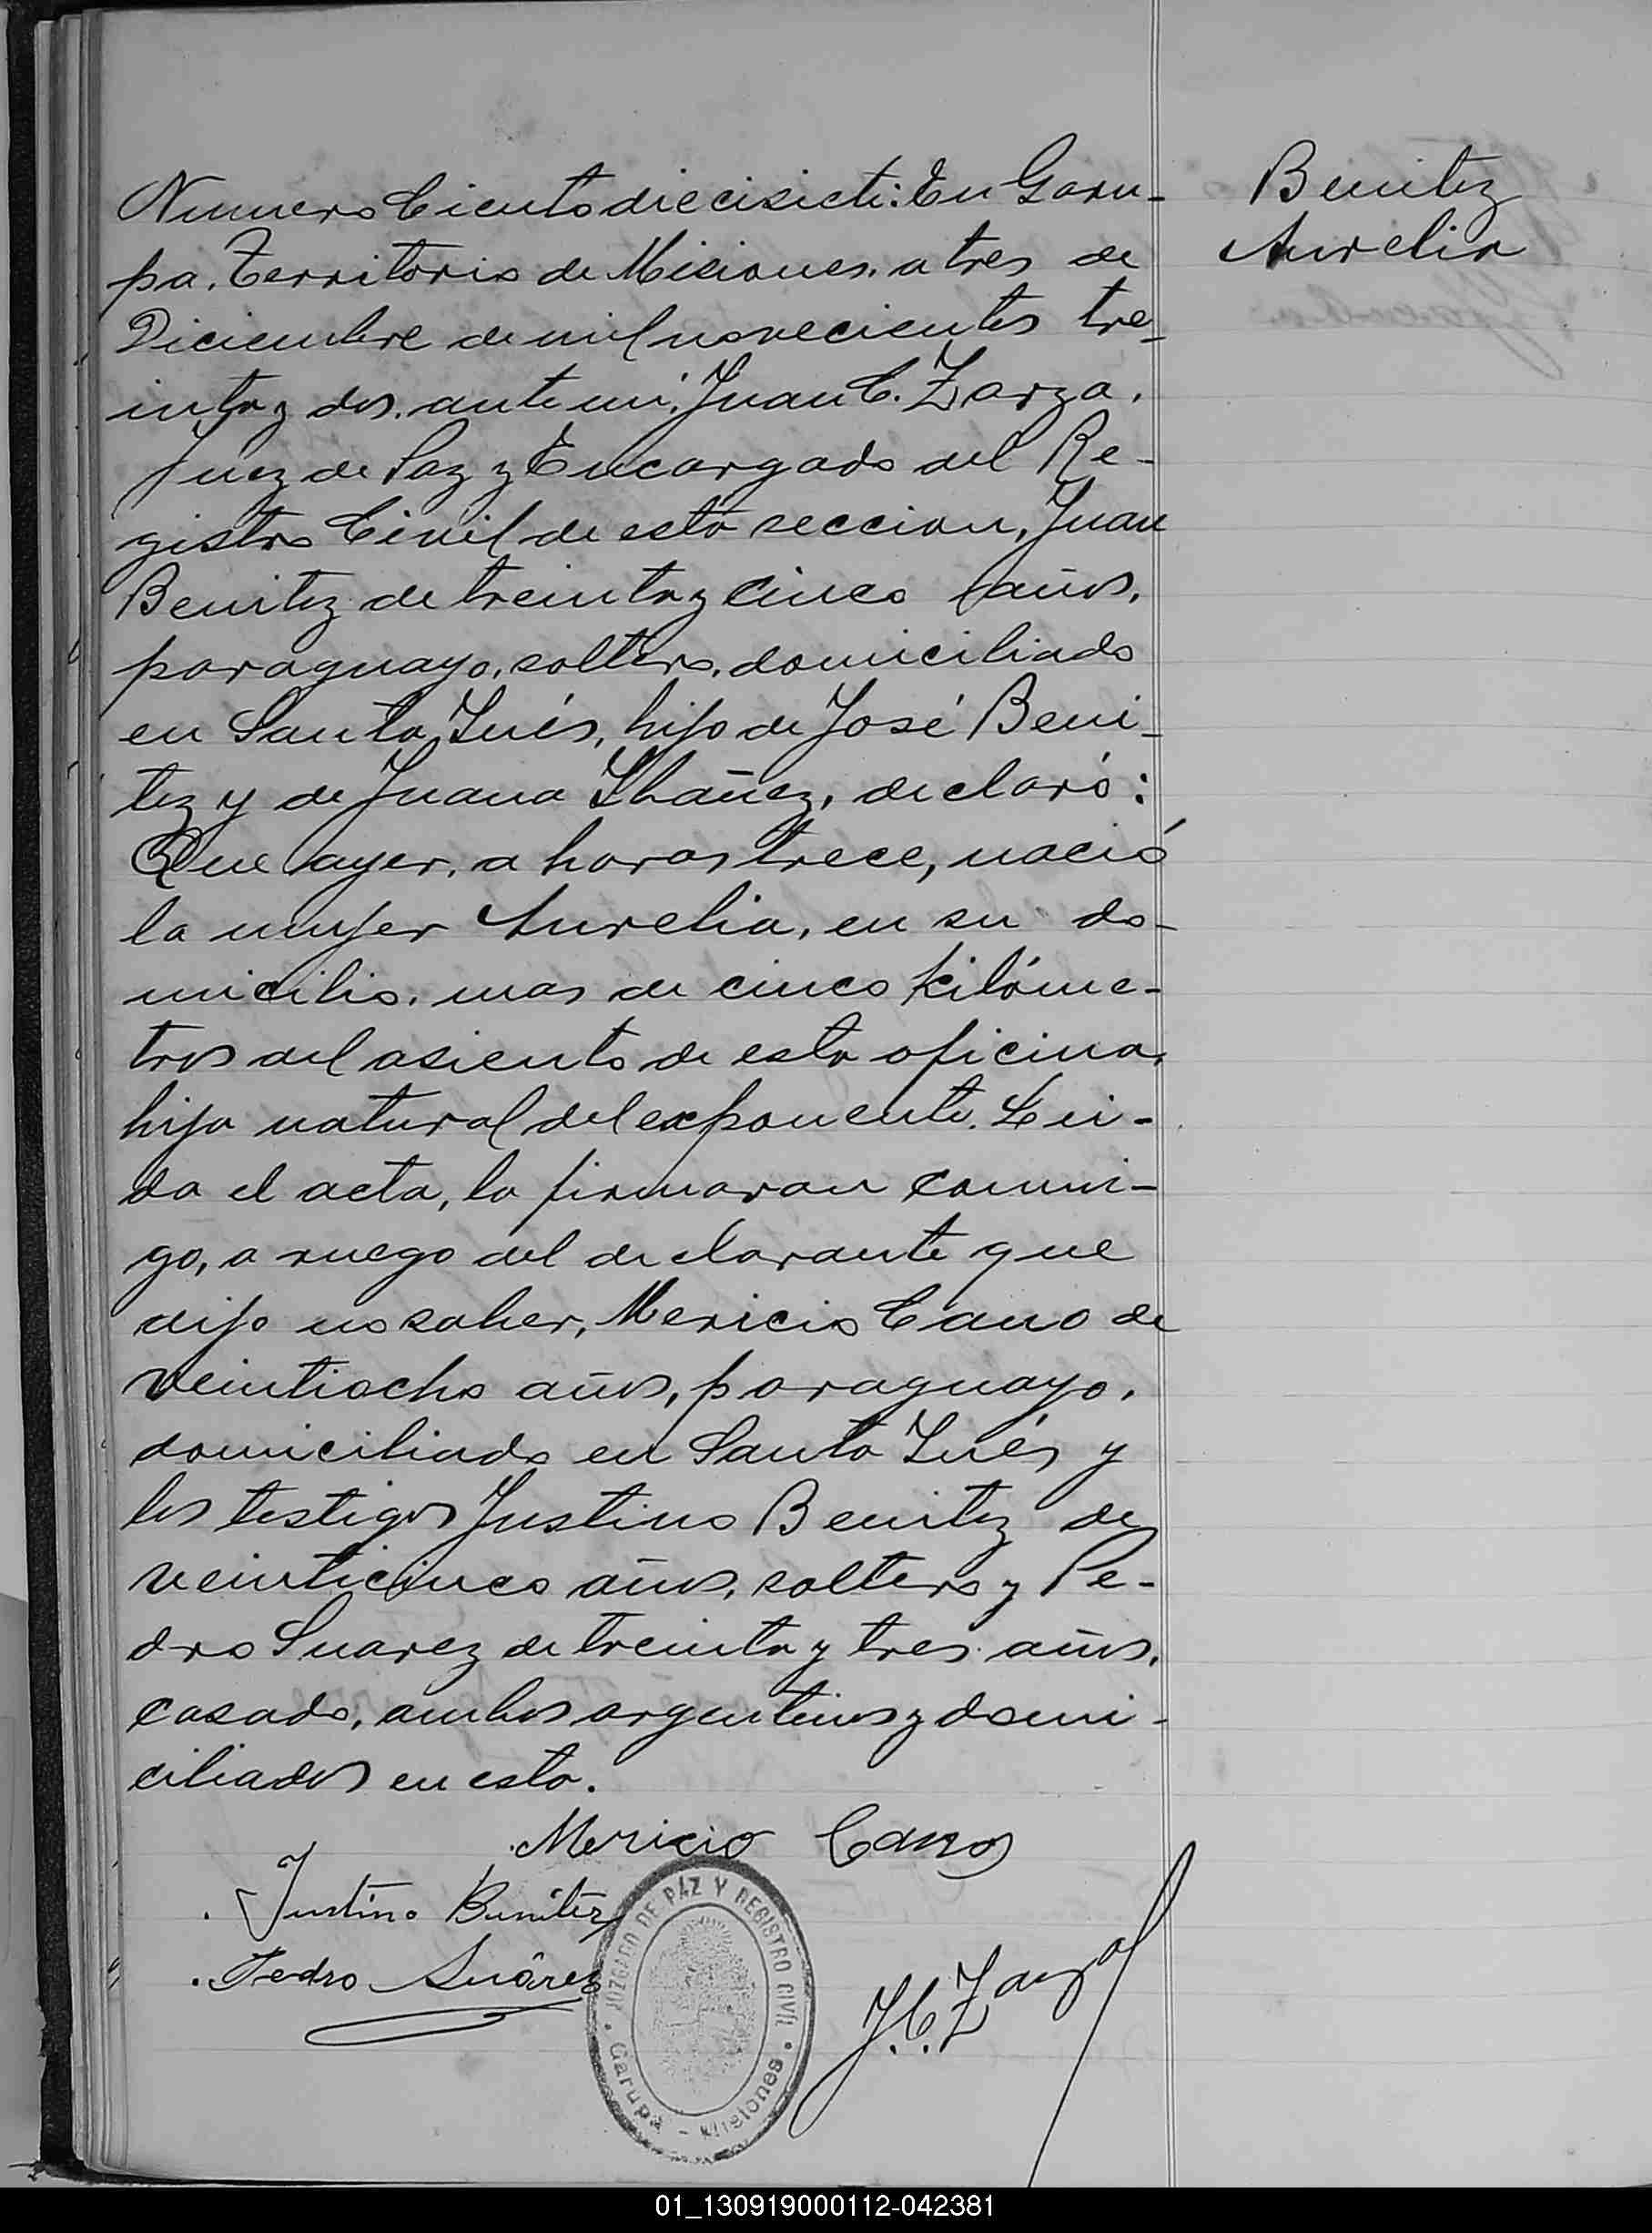 Benitez
Aurelia
Numero Ciento diecisiete: En Garu-
pa, Territorio de Misiones, a tres de
Diciembre de mil novecientos tre-
inta y dos, ante mi, Juan C. Zarza,
Juez de Paz y Encargado del Re-
gistro Civil de esta seccion, Juan
Benitez de treinta y cinco años,
paraguayo, soltero, domiciliado
en Santa Inés, hijo de José Beni-
tez y de Juana Ibáñez, declaró:
Que ayer, a horas trece, nació
la mujer Aurelia, en su do-
micilio, mas de cinco kilóme-
tros del asiento de esta oficina,
hija natural del exponente. Lei-
da el acta, la firmaron conmi-
go, a ruego del declarante que
dijo no saber, Mericio Cano de
veintiocho años, paraguayo,
domiciliado en Santa Inés y
los testigos Justino Benitez de
veinticinco años, soltero y Pe-
dro Suarez de treinta y tres años,
casado, ambos argentinos y domi-
ciliados en esta.
Mericio Cano
Justino Benitez
Pedro Suárez
J.C. Zarza
JUZGADO DE PAZ Y REGISTRO CIVIL
Garupá - Misiones
01_130919000112-042381